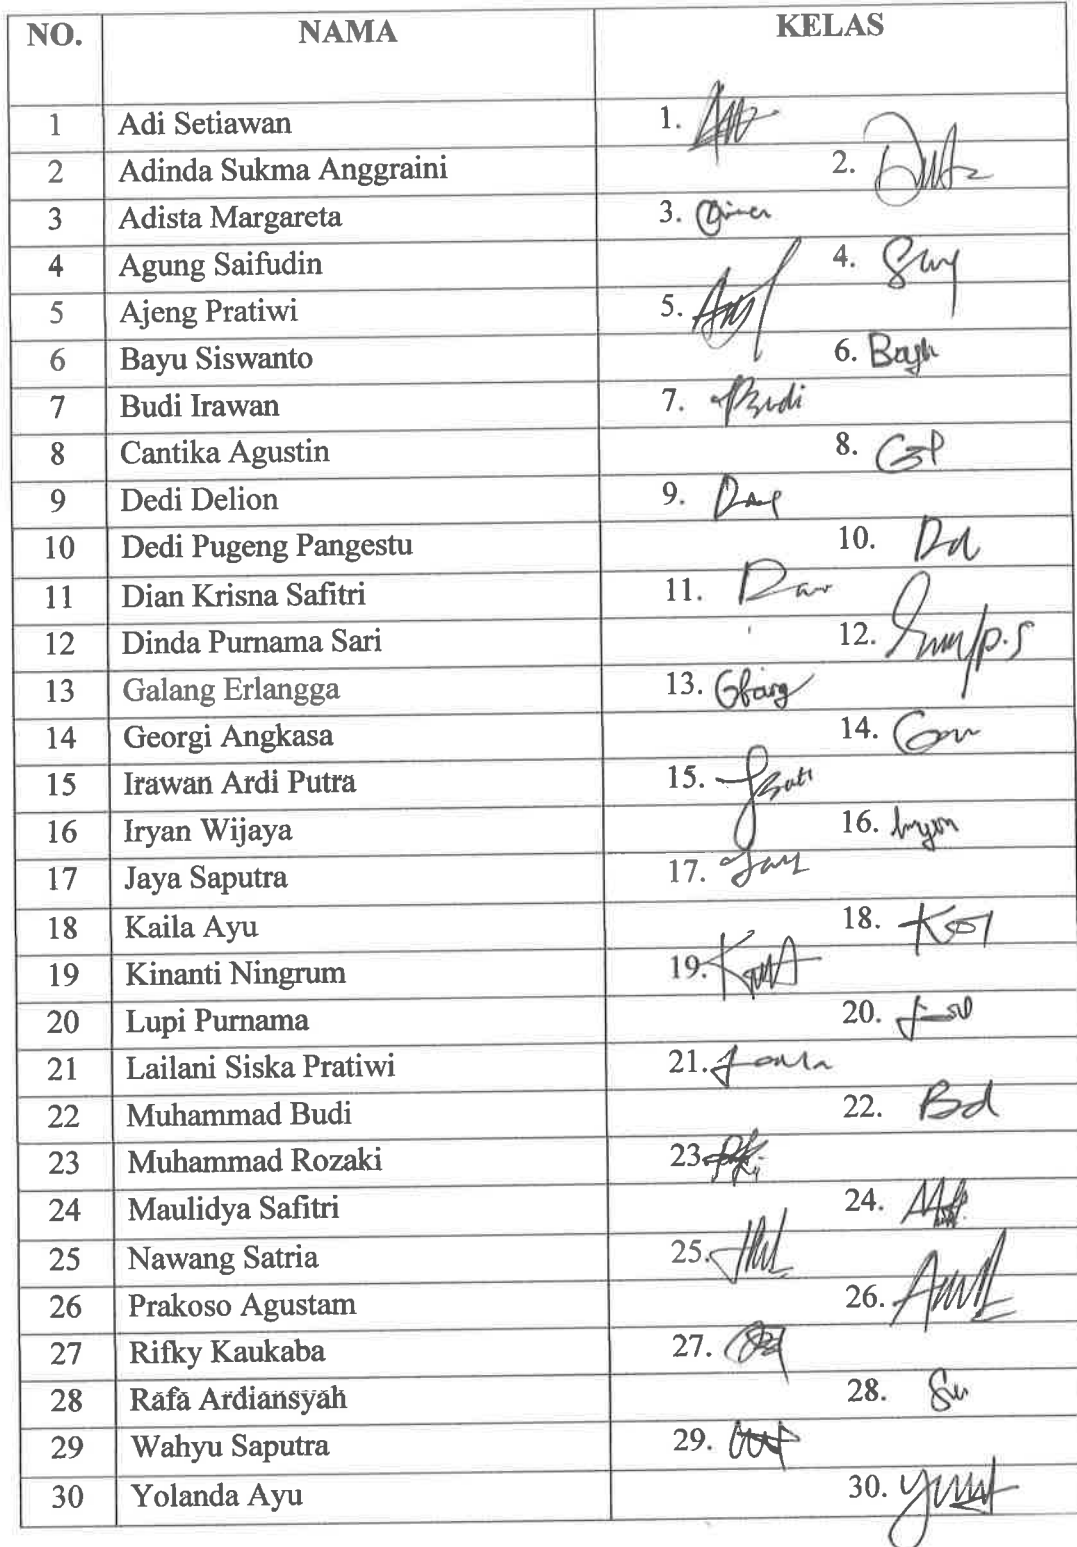 NO. NAMA KELAS
1 Adi Setiawan 1.
2 Adinda Sukma Anggraini 2.
3 Adista Margareta 3.
4 Agung Saifudin 4.
5 Ajeng Pratiwi 5.
6 Bayu Siswanto 6.
7 Budi Irawan 7. Budi
8 Cantika Agustin 8.
9 Dedi Delion 9.
10 Dedi Pugeng Pangestu 10.
11 Dian Krisna Safitri 11.
12 Dinda Purnama Sari 12.
13 Galang Erlangga 13.
14 Georgi Angkasa 14.
15 Irawan Ardi Putra 15.
16 Iryan Wijaya 16.
17 Jaya Saputra 17.
18 Kaila Ayu 18.
19 Kinanti Ningrum 19.
20 Lupi Purnama 20.
21 Lailani Siska Pratiwi 21.
22 Muhammad Budi 22. Bd
23 Muhammad Rozaki 23.
24 Maulidya Safitri 24.
25 Nawang Satria 25.
26 Prakoso Agustam 26.
27 Rifky Kaukaba 27.
28 Rafa Ardiansyah 28.
29 Wahyu Saputra 29.
30 Yolanda Ayu 30.